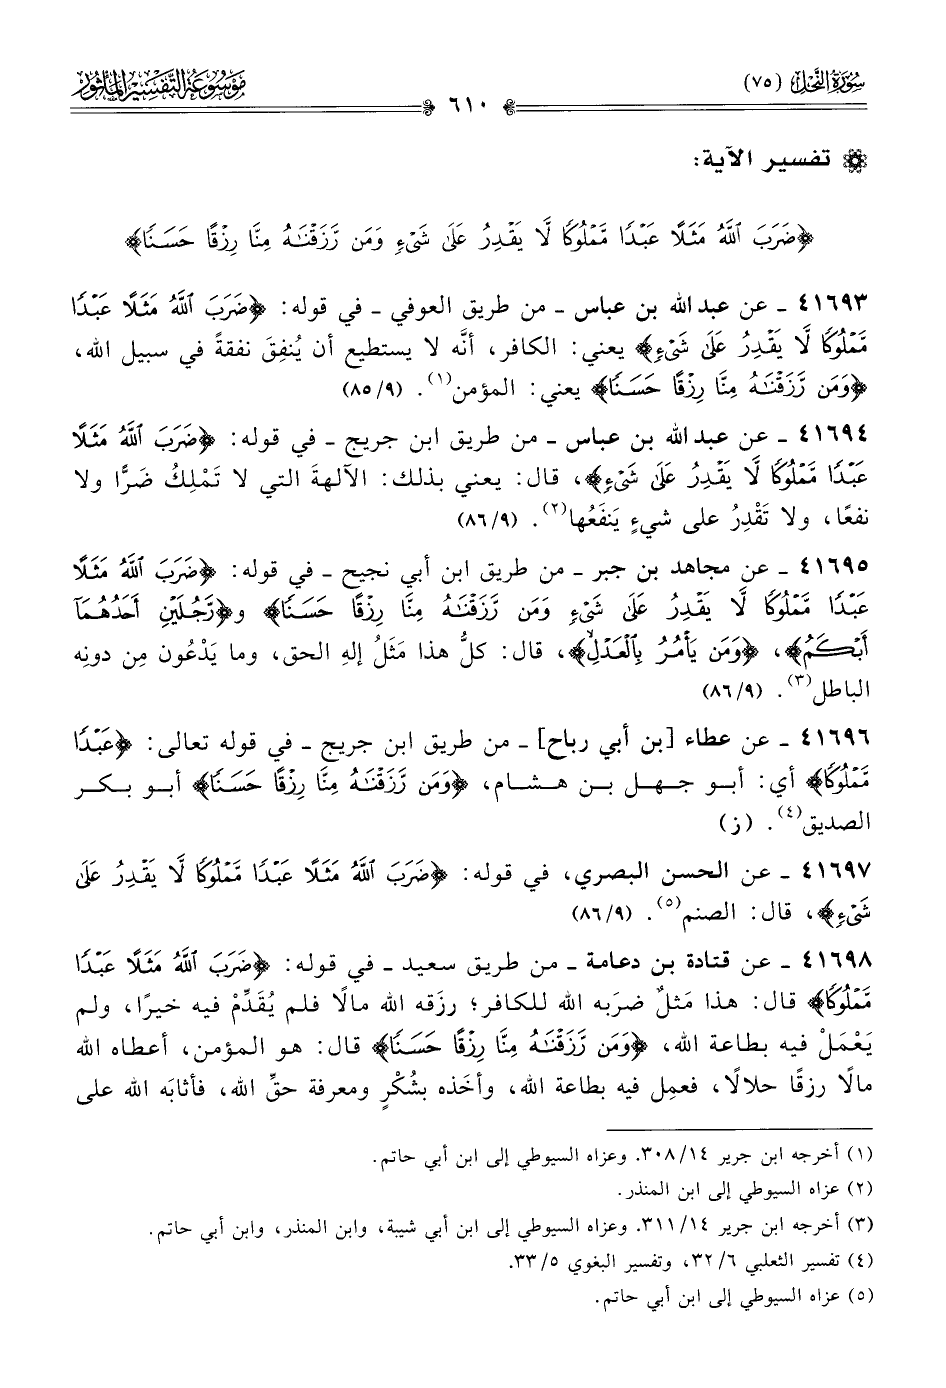 سُورَةُ النَّحْلِ (٧٥)
موسوعة التفسير المأثور
٦١٠
تفسير الآية:
﴿ضَرَبَ ٱللَّهُ مَثَلًا عَبْدًا مَّمْلُوكًا لَّا يَقْدِرُ عَلَىٰ شَيْءٍ وَمَن رَّزَقْنَٰهُ مِنَّا رِزْقًا حَسَنًا﴾
٤١٦٩٣ ـ عن عبد الله بن عباس ـ من طريق العوفي ـ في قوله: ﴿ضَرَبَ ٱللَّهُ مَثَلًا عَبْدًا
مَّمْلُوكًا لَّا يَقْدِرُ عَلَىٰ شَيْءٍ﴾ يعني: الكافر، أنَّه لا يستطيع أن يُنفِقَ نفقةً في سبيل الله،
﴿وَمَن رَّزَقْنَٰهُ مِنَّا رِزْقًا حَسَنًا﴾ يعني: المؤمن(١). (٨٥/٩)
٤١٦٩٤ ـ عن عبد الله بن عباس ـ من طريق ابن جريج ـ في قوله: ﴿ضَرَبَ ٱللَّهُ مَثَلًا
عَبْدًا مَّمْلُوكًا لَّا يَقْدِرُ عَلَىٰ شَيْءٍ﴾، قال: يعني بذلك: الآلهةَ التي لا تَمْلِكُ ضَرًّا ولا
نفعًا، ولا تَقْدِرُ على شيءٍ يَنفَعُها(٢). (٨٦/٩)
٤١٦٩٥ ـ عن مجاهد بن جبر ـ من طريق ابن أبي نجيح ـ في قوله: ﴿ضَرَبَ ٱللَّهُ مَثَلًا
عَبْدًا مَّمْلُوكًا لَّا يَقْدِرُ عَلَىٰ شَيْءٍ وَمَن رَّزَقْنَٰهُ مِنَّا رِزْقًا حَسَنًا﴾ و﴿رَّجُلَيْنِ أَحَدُهُمَآ
أَبْكَمُ﴾، ﴿وَمَن يَأْمُرُ بِٱلْعَدْلِ﴾، قال: كلُّ هذا مَثَلُ إلهِ الحق، وما يَدْعُون مِن دونِه
الباطل(٣). (٨٦/٩)
٤١٦٩٦ ـ عن عطاء [بن أبي رباح] ـ من طريق ابن جريج ـ في قوله تعالى: ﴿عَبْدًا
مَّمْلُوكًا﴾ أي: أبو جهل بن هشام، ﴿وَمَن رَّزَقْنَٰهُ مِنَّا رِزْقًا حَسَنًا﴾ أبو بكر
الصديق(٤). (ز)
٤١٦٩٧ ـ عن الحسن البصري، في قوله: ﴿ضَرَبَ ٱللَّهُ مَثَلًا عَبْدًا مَّمْلُوكًا لَّا يَقْدِرُ عَلَىٰ
شَيْءٍ﴾، قال: الصنم(٥). (٨٦/٩)
٤١٦٩٨ ـ عن قتادة بن دعامة ـ من طريق سعيد ـ في قوله: ﴿ضَرَبَ ٱللَّهُ مَثَلًا عَبْدًا
مَّمْلُوكًا﴾ قال: هذا مَثلٌ ضرَبه الله للكافر؛ رزَقه الله مالًا فلم يُقَدِّمْ فيه خيرًا، ولم
يَعْمَلْ فيه بطاعة الله، ﴿وَمَن رَّزَقْنَٰهُ مِنَّا رِزْقًا حَسَنًا﴾ قال: هو المؤمن، أعطاه الله
مالًا رزقًا حلالًا، فعمِل فيه بطاعة الله، وأخَذه بشُكْرٍ ومعرفة حقِّ الله، فأثابَه الله على
(١) أخرجه ابن جرير ٣٠٨/١٤. وعزاه السيوطي إلى ابن أبي حاتم.
(٢) عزاه السيوطي إلى ابن المنذر.
(٣) أخرجه ابن جرير ٣١١/١٤. وعزاه السيوطي إلى ابن أبي شيبة، وابن المنذر، وابن أبي حاتم.
(٤) تفسير الثعلبي ٣٢/٦، وتفسير البغوي ٣٣/٥.
(٥) عزاه السيوطي إلى ابن أبي حاتم.